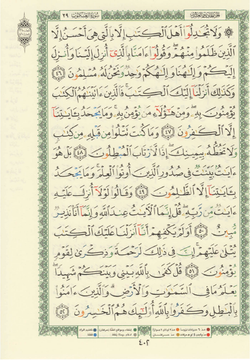 وَلَا تُجَٰدِلُوٓا۟ أَهْلَ ٱلْكِتَٰبِ إِلَّا بِٱلَّتِى هِىَ أَحْسَنُ إِلَّا
ٱلَّذِينَ ظَلَمُوا۟ مِنْهُمْ وَقُولُوٓا۟ ءَامَنَّا بِٱلَّذِىٓ أُنزِلَ إِلَيْنَا وَأُنزِلَ
إِلَيْكُمْ وَإِلَٰهُنَا وَإِلَٰهُكُمْ وَٰحِدٌ وَنَحْنُ لَهُۥ مُسْلِمُونَ ٤٦
وَكَذَٰلِكَ أَنزَلْنَآ إِلَيْكَ ٱلْكِتَٰبَ فَٱلَّذِينَ ءَاتَيْنَٰهُمُ ٱلْكِتَٰبَ
يُؤْمِنُونَ بِهِۦ وَمِنْ هَٰٓؤُلَآءِ مَن يُؤْمِنُ بِهِۦ وَمَا يَجْحَدُ بِـَٔايَٰتِنَآ
إِلَّا ٱلْكَٰفِرُونَ ٤٧ وَمَا كُنتَ تَتْلُوا۟ مِن قَبْلِهِۦ مِن كِتَٰبٍ
وَلَا تَخُطُّهُۥ بِيَمِينِكَ إِذًا لَّٱرْتَابَ ٱلْمُبْطِلُونَ ٤٨ بَلْ هُوَ
ءَايَٰتٌۢ بَيِّنَٰتٌ فِى صُدُورِ ٱلَّذِينَ أُوتُوا۟ ٱلْعِلْمَ وَمَا يَجْحَدُ
بِـَٔايَٰتِنَآ إِلَّا ٱلظَّٰلِمُونَ ٤٩ وَقَالُوا۟ لَوْلَآ أُنزِلَ عَلَيْهِ
ءَايَٰتٌ مِّن رَّبِّهِۦ قُلْ إِنَّمَا ٱلْءَايَٰتُ عِندَ ٱللَّهِ وَإِنَّمَآ أَنَا۠ نَذِيرٌ
مُّبِينٌ ٥٠ أَوَلَمْ يَكْفِهِمْ أَنَّآ أَنزَلْنَا عَلَيْكَ ٱلْكِتَٰبَ
يُتْلَىٰ عَلَيْهِمْ إِنَّ فِى ذَٰلِكَ لَرَحْمَةً وَذِكْرَىٰ لِقَوْمٍ
يُؤْمِنُونَ ٥١ قُلْ كَفَىٰ بِٱللَّهِ بَيْنِى وَبَيْنَكُمْ شَهِيدًا
يَعْلَمُ مَا فِى ٱلسَّمَٰوَٰتِ وَٱلْأَرْضِ وَٱلَّذِينَ ءَامَنُوا۟
بِٱلْبَٰطِلِ وَكَفَرُوا۟ بِٱللَّهِ أُو۟لَٰٓئِكَ هُمُ ٱلْخَٰسِرُونَ ٥٢
٤٠٢